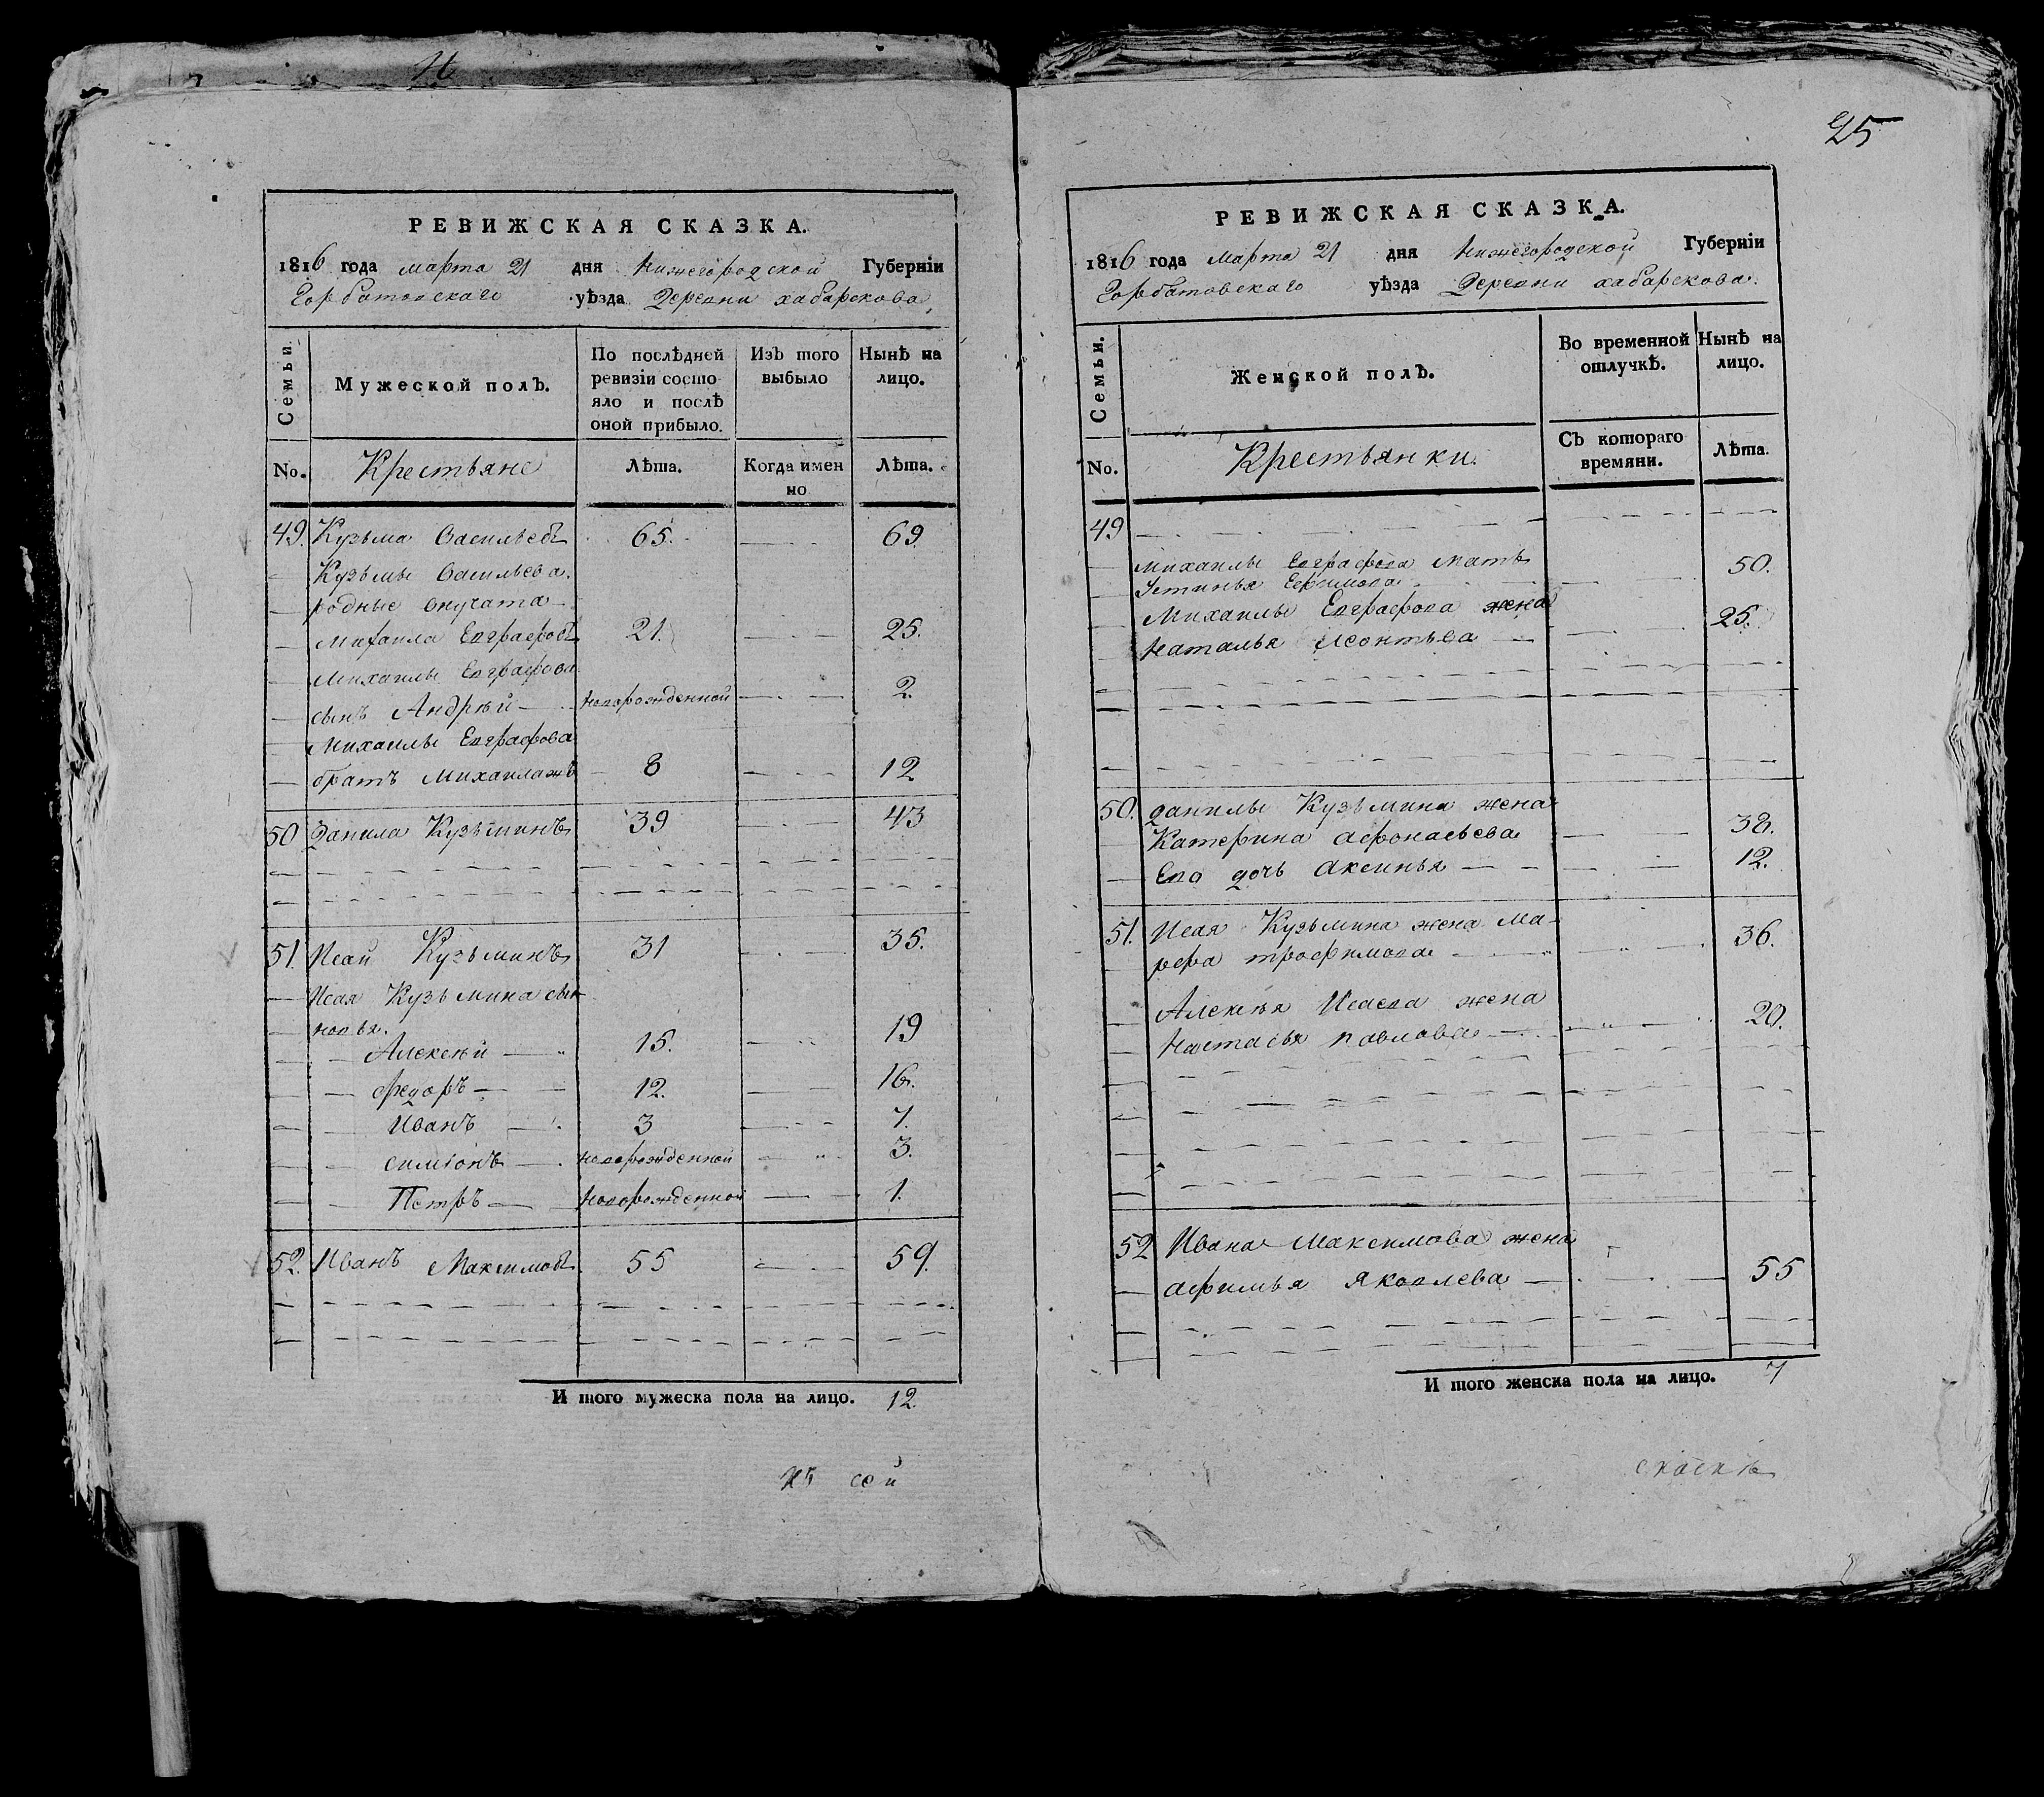 РЕВИЖСКАЯ СКАЗКА.
1816 года марта 21 дня Нижегородской Губерніи
Горбатовскаго уѣзда Деревни хабарскова
Семьи.
Мужеской полъ.
По послѣдней ревизіи состо-
яло и послѣ
оной прибыло.
Изъ того
выбыло
Нынѣ на
лицо.
No. Крестьяне Лѣта. Когда имен
но
Лѣта.
49. Кузьма Васильевъ 65. 69.
Кузьмы Васильева
родные внучата
Михаила Евграфовъ 21. 25.
Михаилы Евграфова
сынъ Андрѣй новорожденной 2.
Михаилы Евграфова
братъ Михаилажъ 8 12
50 Данила Кузьминъ 39 43
51. Исай Кузьминъ 31 35.
Исая Кузьмина сы-
новья.
Алексѣй 15. 19
Федоръ 12. 16.
Иванъ 3 7.
симіонъ новорожденной 3.
Петръ новорожденной 1.
52. Иванъ Максимовъ 55 59.
И того мужеска пола на лицо. 12.
Къ сей
25
РЕВИЖСКАЯ СКАЗКА.
1816 года Марта 21 дня Нижегородской Губерніи
Горбатовскаго уѣзда Деревни хабарскова.
Семьи.
Женской полъ.
Во временной
отлучкѣ.
Нынѣ на
лицо.
No. Крестьянки. Съ котораго
времяни.
Лѣта.
49
Михаилы Евграфова мать
Устинья Ефимова 50.
Михаилы Евграфова жена
Наталья Леонтьва 25.
50. Данилы Кузьмина жена
Катерина афонасьева 38.
Ево дочь аксинья 12.
51. Исая Кузьмина жена Ма-
рфа трофимова 36.
Алексѣя Исаева жена
Настасья павлова 20.
52 Ивана Максимова жена
афимья яковлева 55
И того женска пола на лицо. 7
скаскѣ